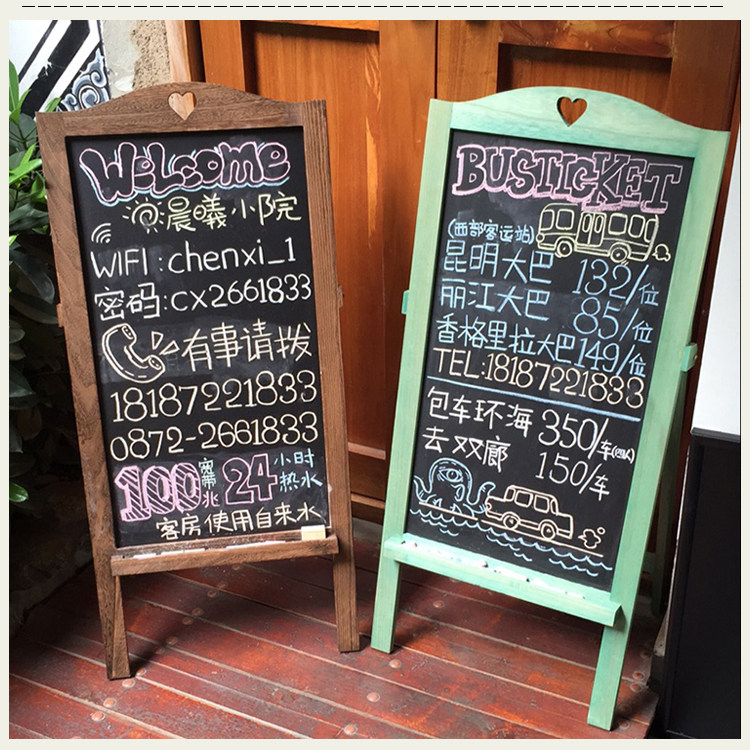 WELcome
晨曦小院
WIFI:chenxi_1
密码:cx2661833
有事请拨
18187221833
0872-2661833
100宽带兆24小时热水
客房使用自来水
BUSTICKET
(西部客运站)
昆明大巴 132/位
丽江大巴 85/位
香格里拉大巴149/位
TEL:18187221833
包车环海 350/车(四人)
去双廊 150/车